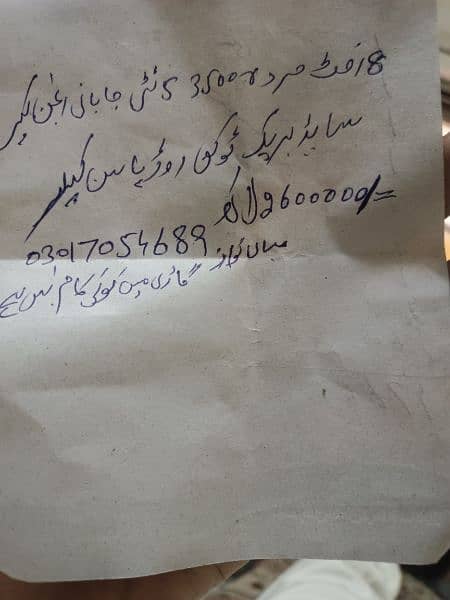 18 فٹ مزدا 3500 5 نٹی جاپانی انجن
سائیڈ بریک ٹوکن روڈ پاس
2600000/= لاکھ
03017054689 میاں نواز
گاڑی میں کوئی کام نہیں ہے